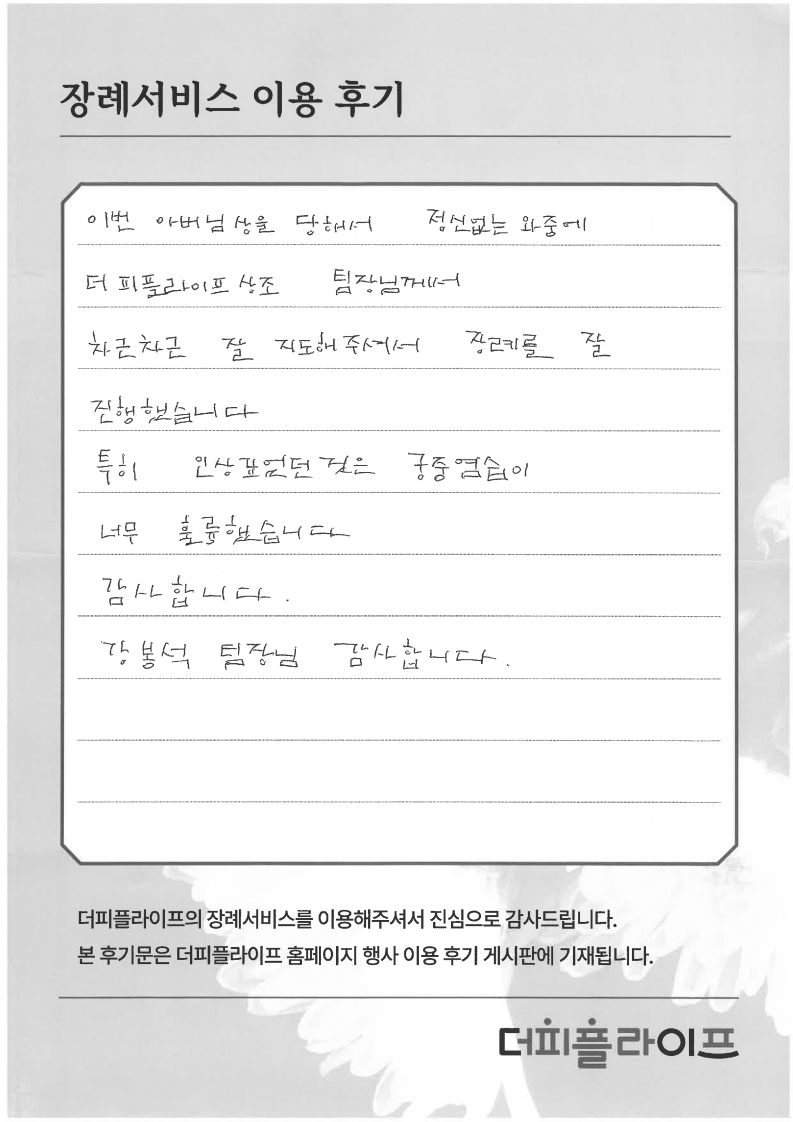 장례서비스 이용 후기
이번 아버님상을 당해서 정신없는 와중에
더 피플라이프 상조 팀장님께서
차근차근 잘 지도해주셔서 장례를 잘
진행했습니다
특히 인상깊었던 것은 궁중염습이
너무 훌륭했습니다
감사합니다.
강봉석 팀장님 감사합니다.
더피플라이프의 장례서비스를 이용해주셔서 진심으로 감사드립니다.
본 후기문은 더피플라이프 홈페이지 행사 이용 후기 게시판에 기재됩니다.
더피플라이프